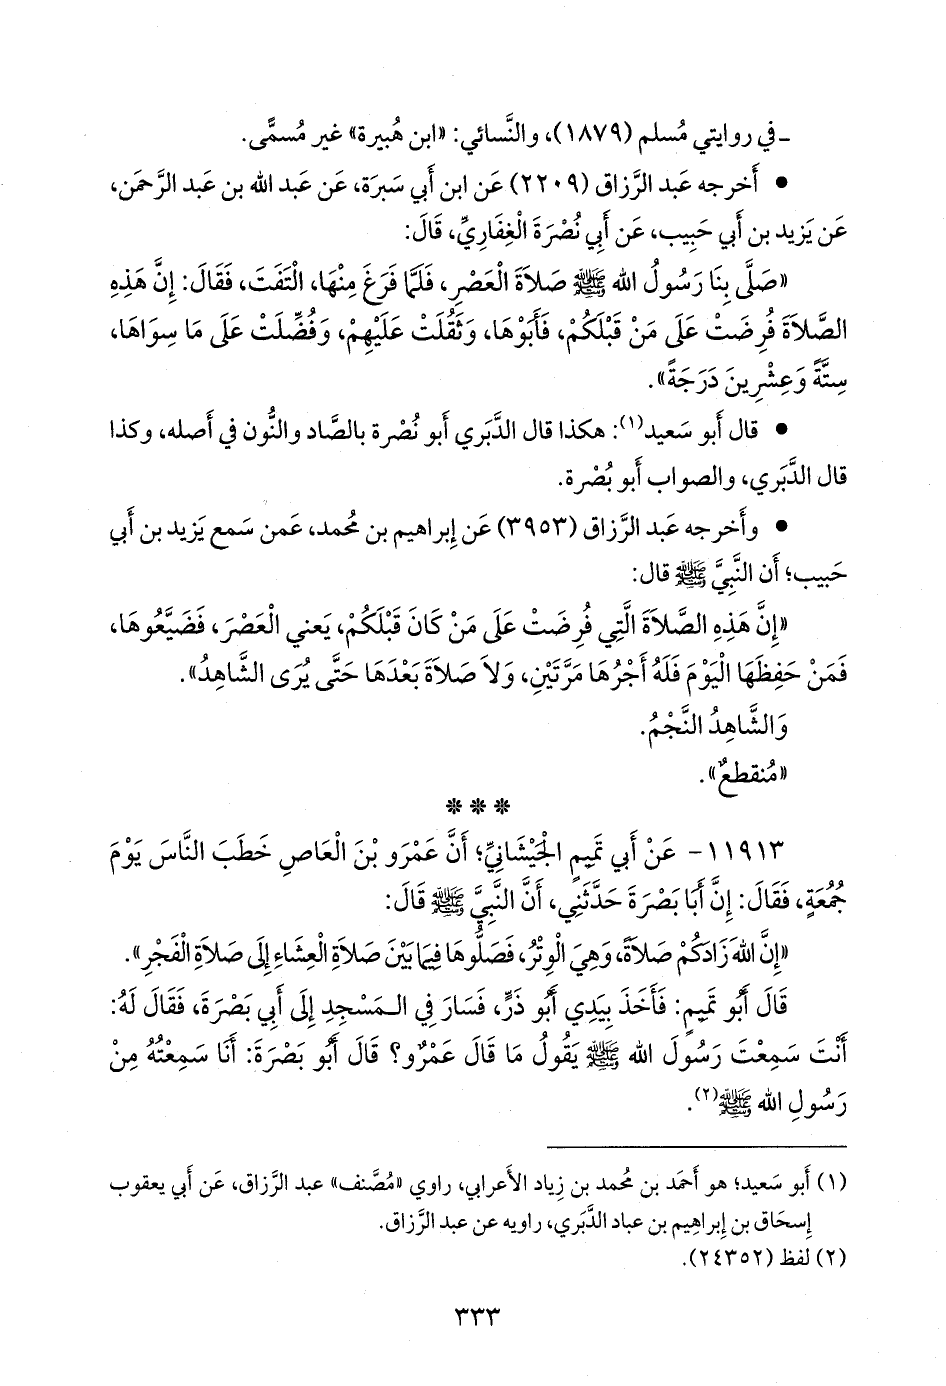 ـ في روايتي مُسلم (١٨٧٩)، والنَّسائي: «ابن هُبيرة» غير مُسمَّى.
• أَخرجه عَبد الرَّزاق (٢٢٠٩) عَن ابن أَبي سَبرَة، عَن عَبد الله بن عَبد الرَّحمَن،
عَن يَزيد بن أَبي حَبِيب، عَن أَبي نُصْرَة الْغِفَارِيِّ، قَالَ:
«صَلَّى بِنَا رَسُولُ الله ﷺ صَلاَةَ الْعَصْرِ، فَلَمَّا فَرَغَ مِنْهَا، الْتَفَتَ، فَقَالَ: إِنَّ هَذِهِ
الصَّلاَةَ فُرِضَتْ عَلَى مَنْ قَبْلَكُمْ، فَأَبَوْهَا، وَثَقُلَتْ عَلَيْهِمْ، وَفُضِّلَتْ عَلَى مَا سِوَاهَا،
سِتَّةً وَعِشْرِينَ دَرَجَةً».
• قال أَبو سَعيد(١): هكذا قال الدَّبَري أَبو نُصْرة بالصَّاد والنُّون في أَصله، وكذا
قال الدَّبَري، والصواب أَبو بُصْرة.
• وأَخرجه عَبد الرَّزاق (٣٩٥٣) عَن إِبراهيم بن مُحمد، عَمن سَمع يَزيد بن أَبي
حَبيب؛ أَن النَّبيَّ ﷺ قال:
«إِنَّ هَذِهِ الصَّلاَةَ الَّتِي فُرِضَتْ عَلَى مَنْ كَانَ قَبْلَكُمْ، يَعني الْعَصْرَ، فَضَيَّعُوهَا،
فَمَنْ حَفِظَهَا الْيَوْمَ فَلَهُ أَجْرُهَا مَرَّتَيْنِ، وَلاَ صَلاَةَ بَعْدَهَا حَتَّى يُرَى الشَّاهِدُ».
وَالشَّاهِدُ النَّجْمُ.
«مُنقطعٌ».
***
١١٩١٣- عَنْ أَبي تَمِيمٍ الجَيْشَانِيِّ؛ أَنَّ عَمْرَو بْنَ الْعَاصِ خَطَبَ النَّاسَ يَوْمَ
جُمُعَةٍ، فَقَالَ: إِنَّ أَبَا بَصْرَةَ حَدَّثَنِي، أَنَّ النَّبِيَّ ﷺ قَالَ:
«إِنَّ اللهَ زَادَكُمْ صَلاَةً، وَهِيَ الْوِتْرُ، فَصَلُّوهَا فِيمَا بَيْنَ صَلاَةِ الْعِشَاءِ إِلَى صَلاَةِ الْفَجْرِ».
قَالَ أَبُو تَمِيمٍ: فَأَخَذَ بِيَدِي أَبُو ذَرٍّ، فَسَارَ فِي الـمَسْجِدِ إِلَى أَبِي بَصْرَةَ، فَقَالَ لَهُ:
أَنْتَ سَمِعْتَ رَسُولَ الله ﷺ يَقُولُ مَا قَالَ عَمْرٌو؟ قَالَ أَبُو بَصْرَةَ: أَنَا سَمِعْتُهُ مِنْ
رَسُولِ الله ﷺ(٢).
(١) أَبو سَعيد؛ هو أَحمَد بن مُحمد بن زِياد الأَعرابي، راوي «مُصَّنف» عبد الرَّزاق، عَن أَبي يعقوب
إِسحَاق بن إِبراهِيم بن عباد الدَّبَري، راويه عن عبد الرَّزاق.
(٢) لفظ (٢٤٣٥٢).
٣٣٣